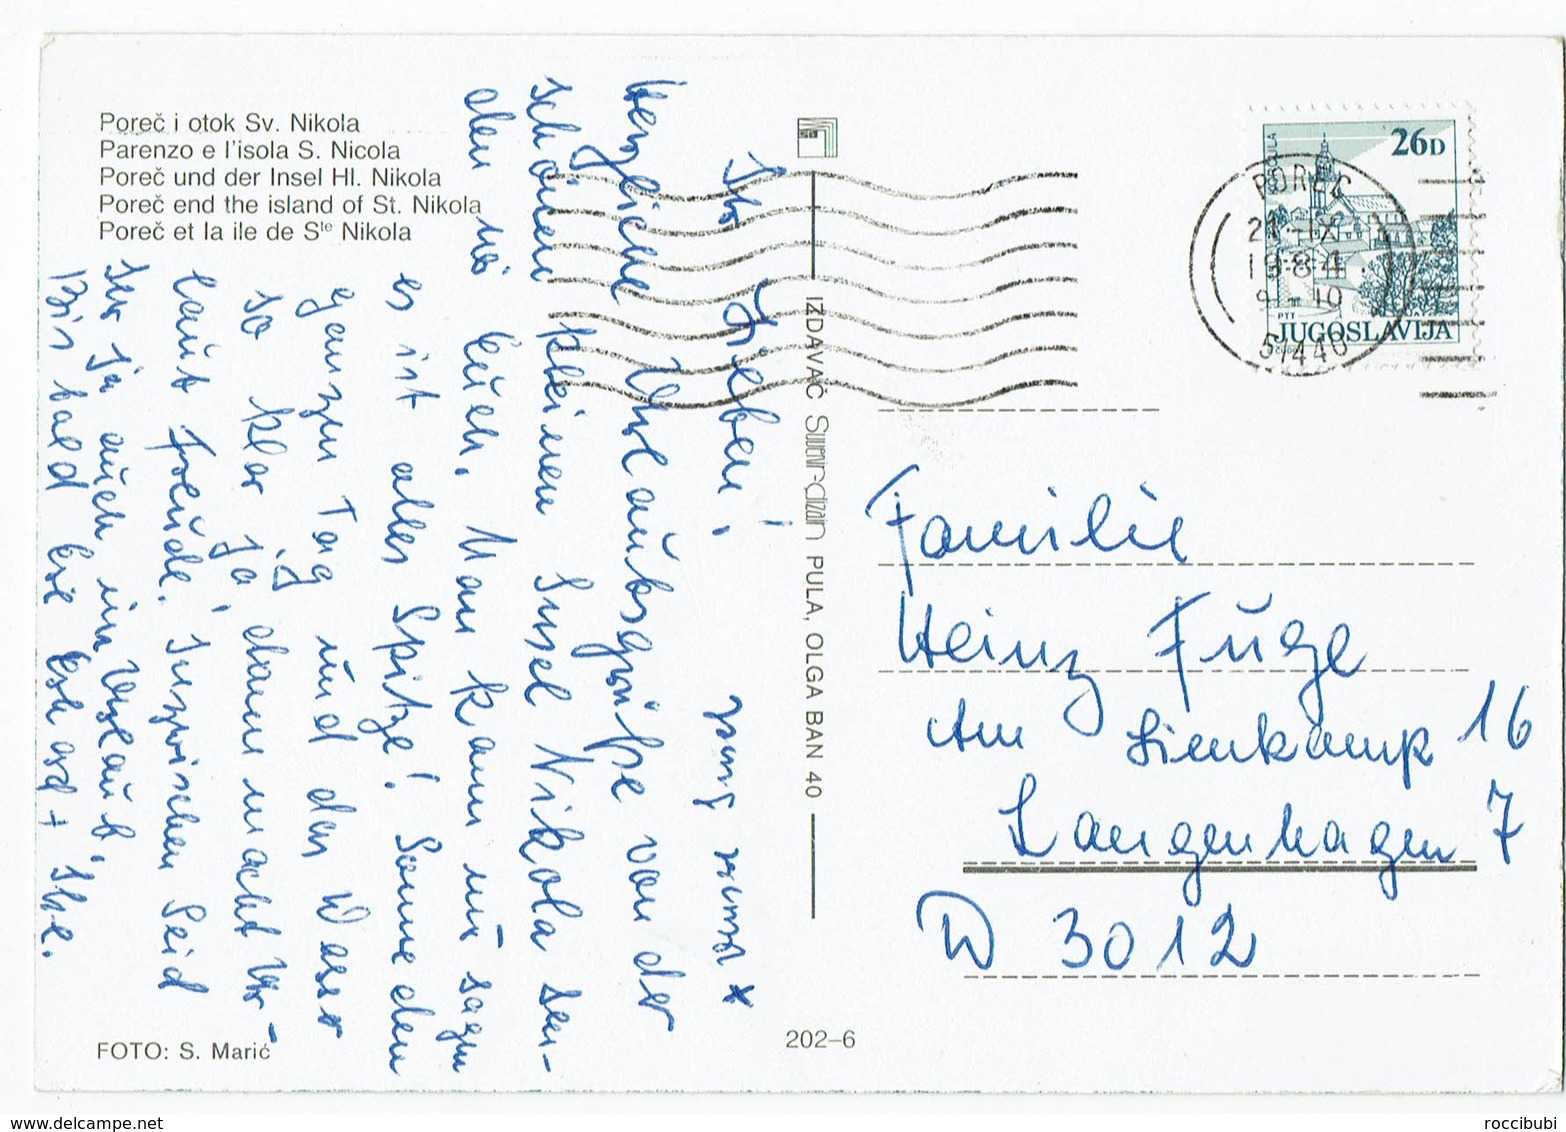 Poreč i otok Sv. Nikola
Parenzo e l'isola S. Nicola
Poreč und der Insel Hl. Nikola
Poreč end the island of St. Nikola
Poreč et la ile de Ste Nikola
Ihr Lieben!
Herzliche Urlaubsgrüße von der
schönen kleinen Insel Nikola sen-
den wir Euch. Man kann nur sagen
es ist alles Spitze! Sonne den
ganzen Tag und das Wasser
so klar ja, dann macht Ur-
laub Freude. Inzwischen seid
Ihr ja auch im Urlaub,
Bis bald Eure
unser Zimmer x
IZDAVAČ Suvenir-dizain PULA, OLGA BAN 40
FOTO: S. Marić
202-6
26D
PTT
JUGOSLAVIJA
POREČ
21.-IX
1984
9-10
51440
Familie
Heinz Füge
Am Lienkamp 16
Langenhagen 7
D 3012
roccibubi